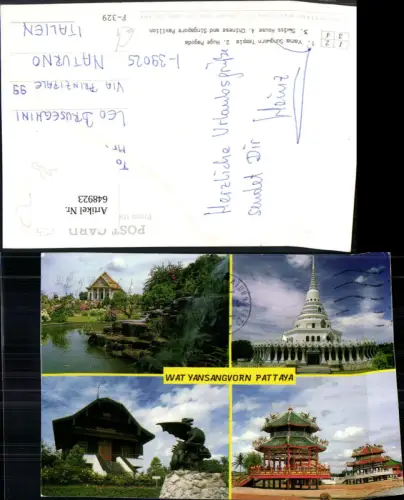 F-329
1. Yanna Sungvarn Temple 2. Huge Pagoda
3. Swiss House 4. Chinese and Singapore Pavillion
Herzliche Urlaubsgrüße
sendet Dir
Heinz
To
Mr.
LEO BRUSEGHINI
VIA PRINZIPALE 99
I-39025 NATURNO
ITALIEN
POST CARD
Artikel Nr.
648923
WAT YANSANGVORN PATTAYA